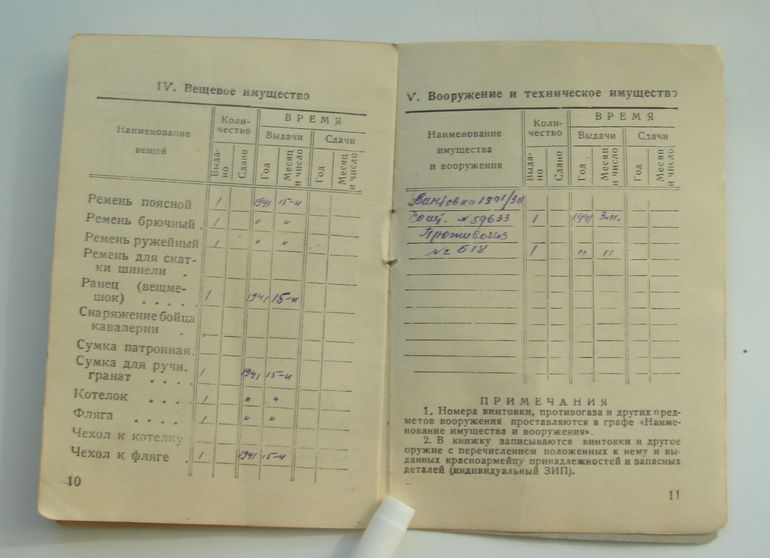 IV. Вещевое имущество
Наименование вещей
Количество
ВРЕМЯ
Выдачи
Сдачи
Выдано
Сдано
Год
Месяц и число
Год
Месяц и число
Ремень поясной 1 1941 15-
Ремень брючный . 1 " "
Ремень ружейный 1 " "
Ремень для скат-
ки шинели .
Ранец (вещме-
шок) . . . . . 1 1941 15-
Снаряжение бойца
кавалерии .
Сумка патронная.
Сумка для ручн.
гранат . . . . 1 1941 15-
Котелок . . . . 1 " "
Фляга . . . . 1 " "
Чехол к котелку
Чехол к фляге . 1 1941 15-
10
V. Вооружение и техническое имущество
Наименование имущества и вооружения
Количество
ВРЕМЯ
Выдачи
Сдачи
Выдано
Сдано
Год
Месяц и число
Год
Месяц и число
Винтовка 1891/30
№ 59633 1 1941
Противогаз
№ 618 1 " "
ПРИМЕЧАНИЯ
1. Номера винтовки, противогаза и других пред-
метов вооружения проставляются в графе «Наиме-
нование имущества и вооружения».
2. В книжку записываются винтовки и другое
оружие с перечислением положенных к нему и вы-
данных красноармейцу принадлежностей и запасных
деталей (индивидуальный ЗИП).
11